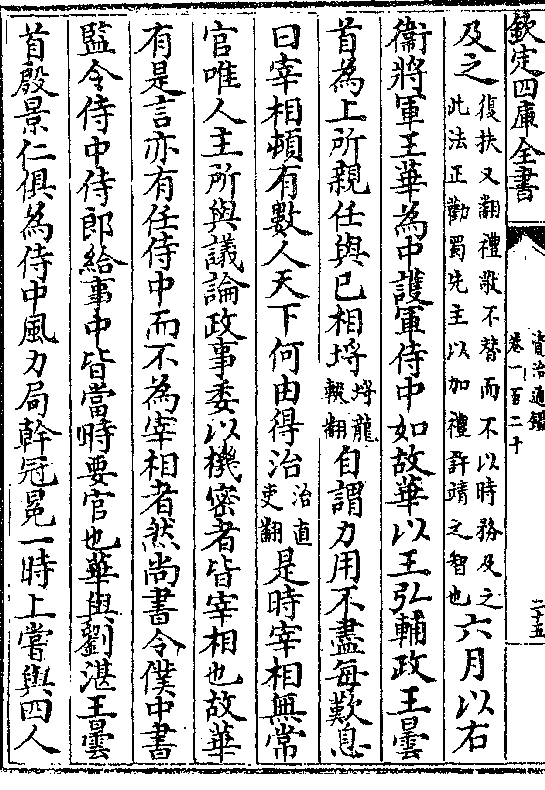 欽定四庫全書
資治通鑑
卷一百二十
二十五
及之復扶又翻禮敬不替而不以時務及之
此法正勸蜀先主以加禮許靖之智也六月以右
衞將軍王華為中護軍侍中如故華以王弘輔政王曇
首為上所親任與已相埒埒龍
輟翻自謂力用不盡每歎息
曰宰相頓有數人天下何由得治治直
吏翻是時宰相無常
官唯人主所與議論政事委以機密者皆宰相也故華
有是言亦有任侍中而不為宰相者然尚書令僕中書
監令侍中侍郎給事中皆當時要官也華與劉湛王曇
首殷景仁俱為侍中風力局幹冠冕一時上嘗與四人